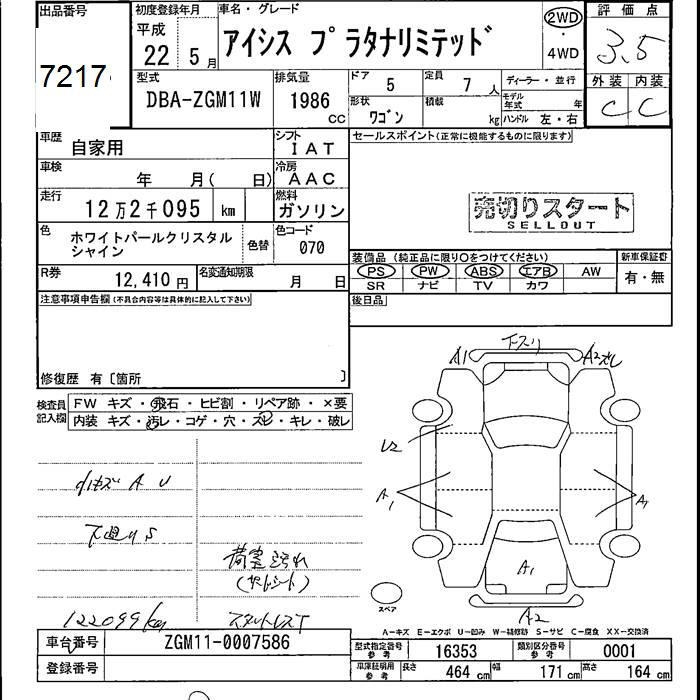 出品番号
7217
初度登録年月
平成
22 5 月
車名・グレード
アイシス プラタナリミテッド
2WD
・
4WD
評価点
3.5
外装 内装
C C
型式
DBA-ZGM11W
排気量
1986 cc
ドア 5
定員 7 人
ディーラー・並行
形状 ワゴン
積載 kg
モデル年式 年
ハンドル 左・右
車歴 自家用
シフト IAT
セールスポイント(正常に機能するものに限ります)
車検 年 月( 日)
冷房 AAC
走行 12万2千095 km
燃料 ガソリン
売切りスタート
SELLOUT
色 ホワイトパールクリスタルシャイン
色替
色コード 070
装備品 (純正品に限り○をつけてください)
新車保証書
PS PW ABS エアB AW
SR ナビ TV カワ
有・無
R券 12,410 円
名変通知期限 月 日
後日品
注意事項申告欄(不具合内容等は具体的に記入して下さい)
修復歴 有〔箇所 〕
検査員記入欄
FW キズ・飛石・ヒビ割・リペア跡・×要
内装 キズ・汚レ・コゲ・穴・スレ・キレ・破レ
下スリ
A1 A2スレ
U2
A1 A1
小キズ A U
下廻りS
荷室汚れ
A1
スペア
122099km
A2
A-キズ E-エクボ U-凹み W-補修跡 S-サビ C-腐食 XX-交換済
車台番号 ZGM11-0007586
型式指定番号 参考 16353
類別区分番号 参考 0001
登録番号
車庫証明用 参考 長さ 464 cm 幅 171 cm 高さ 164 cm